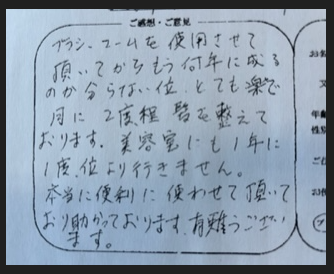 ご感想・ご意見
ブラシ、コームを使用させて
頂いてからもう何年に成る
のか分らない位、とても楽で
月に2度程髪を整えて
おります。美容室にも1年に
1度位より行きません。
本当に便利に使わせて頂いて
おり助かっております。有難うござい
ます。